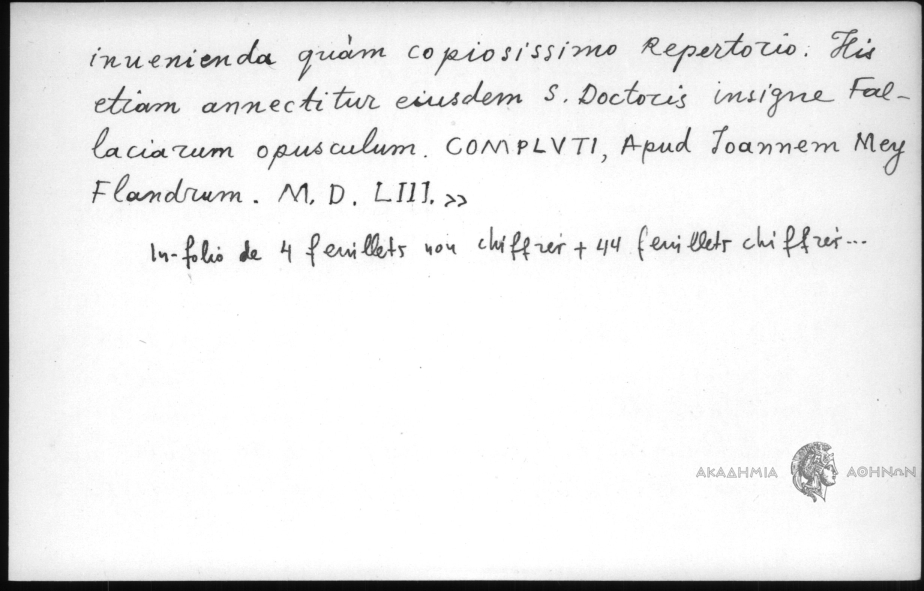 inuenienda quàm copiosissimo Repertorio. His
etiam annectitur eiusdem S. Doctoris insigne Fal-
laciarum opusculum. COMPLVTI, Apud Ioannem Mey
Flandrum. M. D. LIII. »
In-folio de 4 feuillets non chiffrés + 44 feuillets chiffrés...
ΑΚΑΔΗΜΙΑ ΑΘΗΝΩΝ